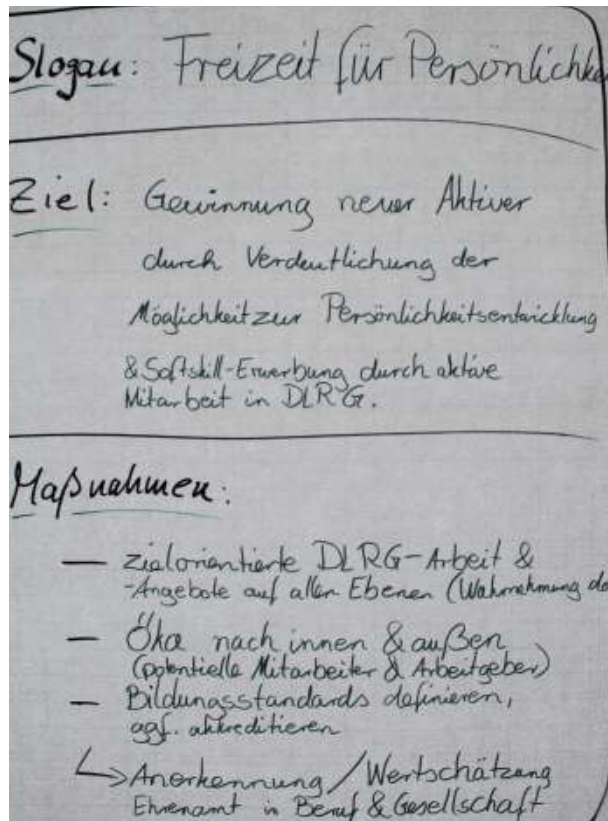 Slogan: Freizeit für Persönlichke
Ziel: Gewinnung neuer Aktiver
durch Verdeutlichung der
Möglichkeit zur Persönlichkeitsentwicklung
& Softskill-Erwerbung durch aktive
Mitarbeit in DLRG.
Maßnahmen:
— zielorientierte DLRG-Arbeit &
-Angebote auf allen Ebenen (Wahrnehmung de
— Öka nach innen & außen
(potentielle Mitarbeiter & Arbeitgeber)
— Bildungsstandards definieren,
ggf. akkreditieren
↳ Anerkennung / Wertschätzung
Ehrenamt in Beruf & Gesellschaft